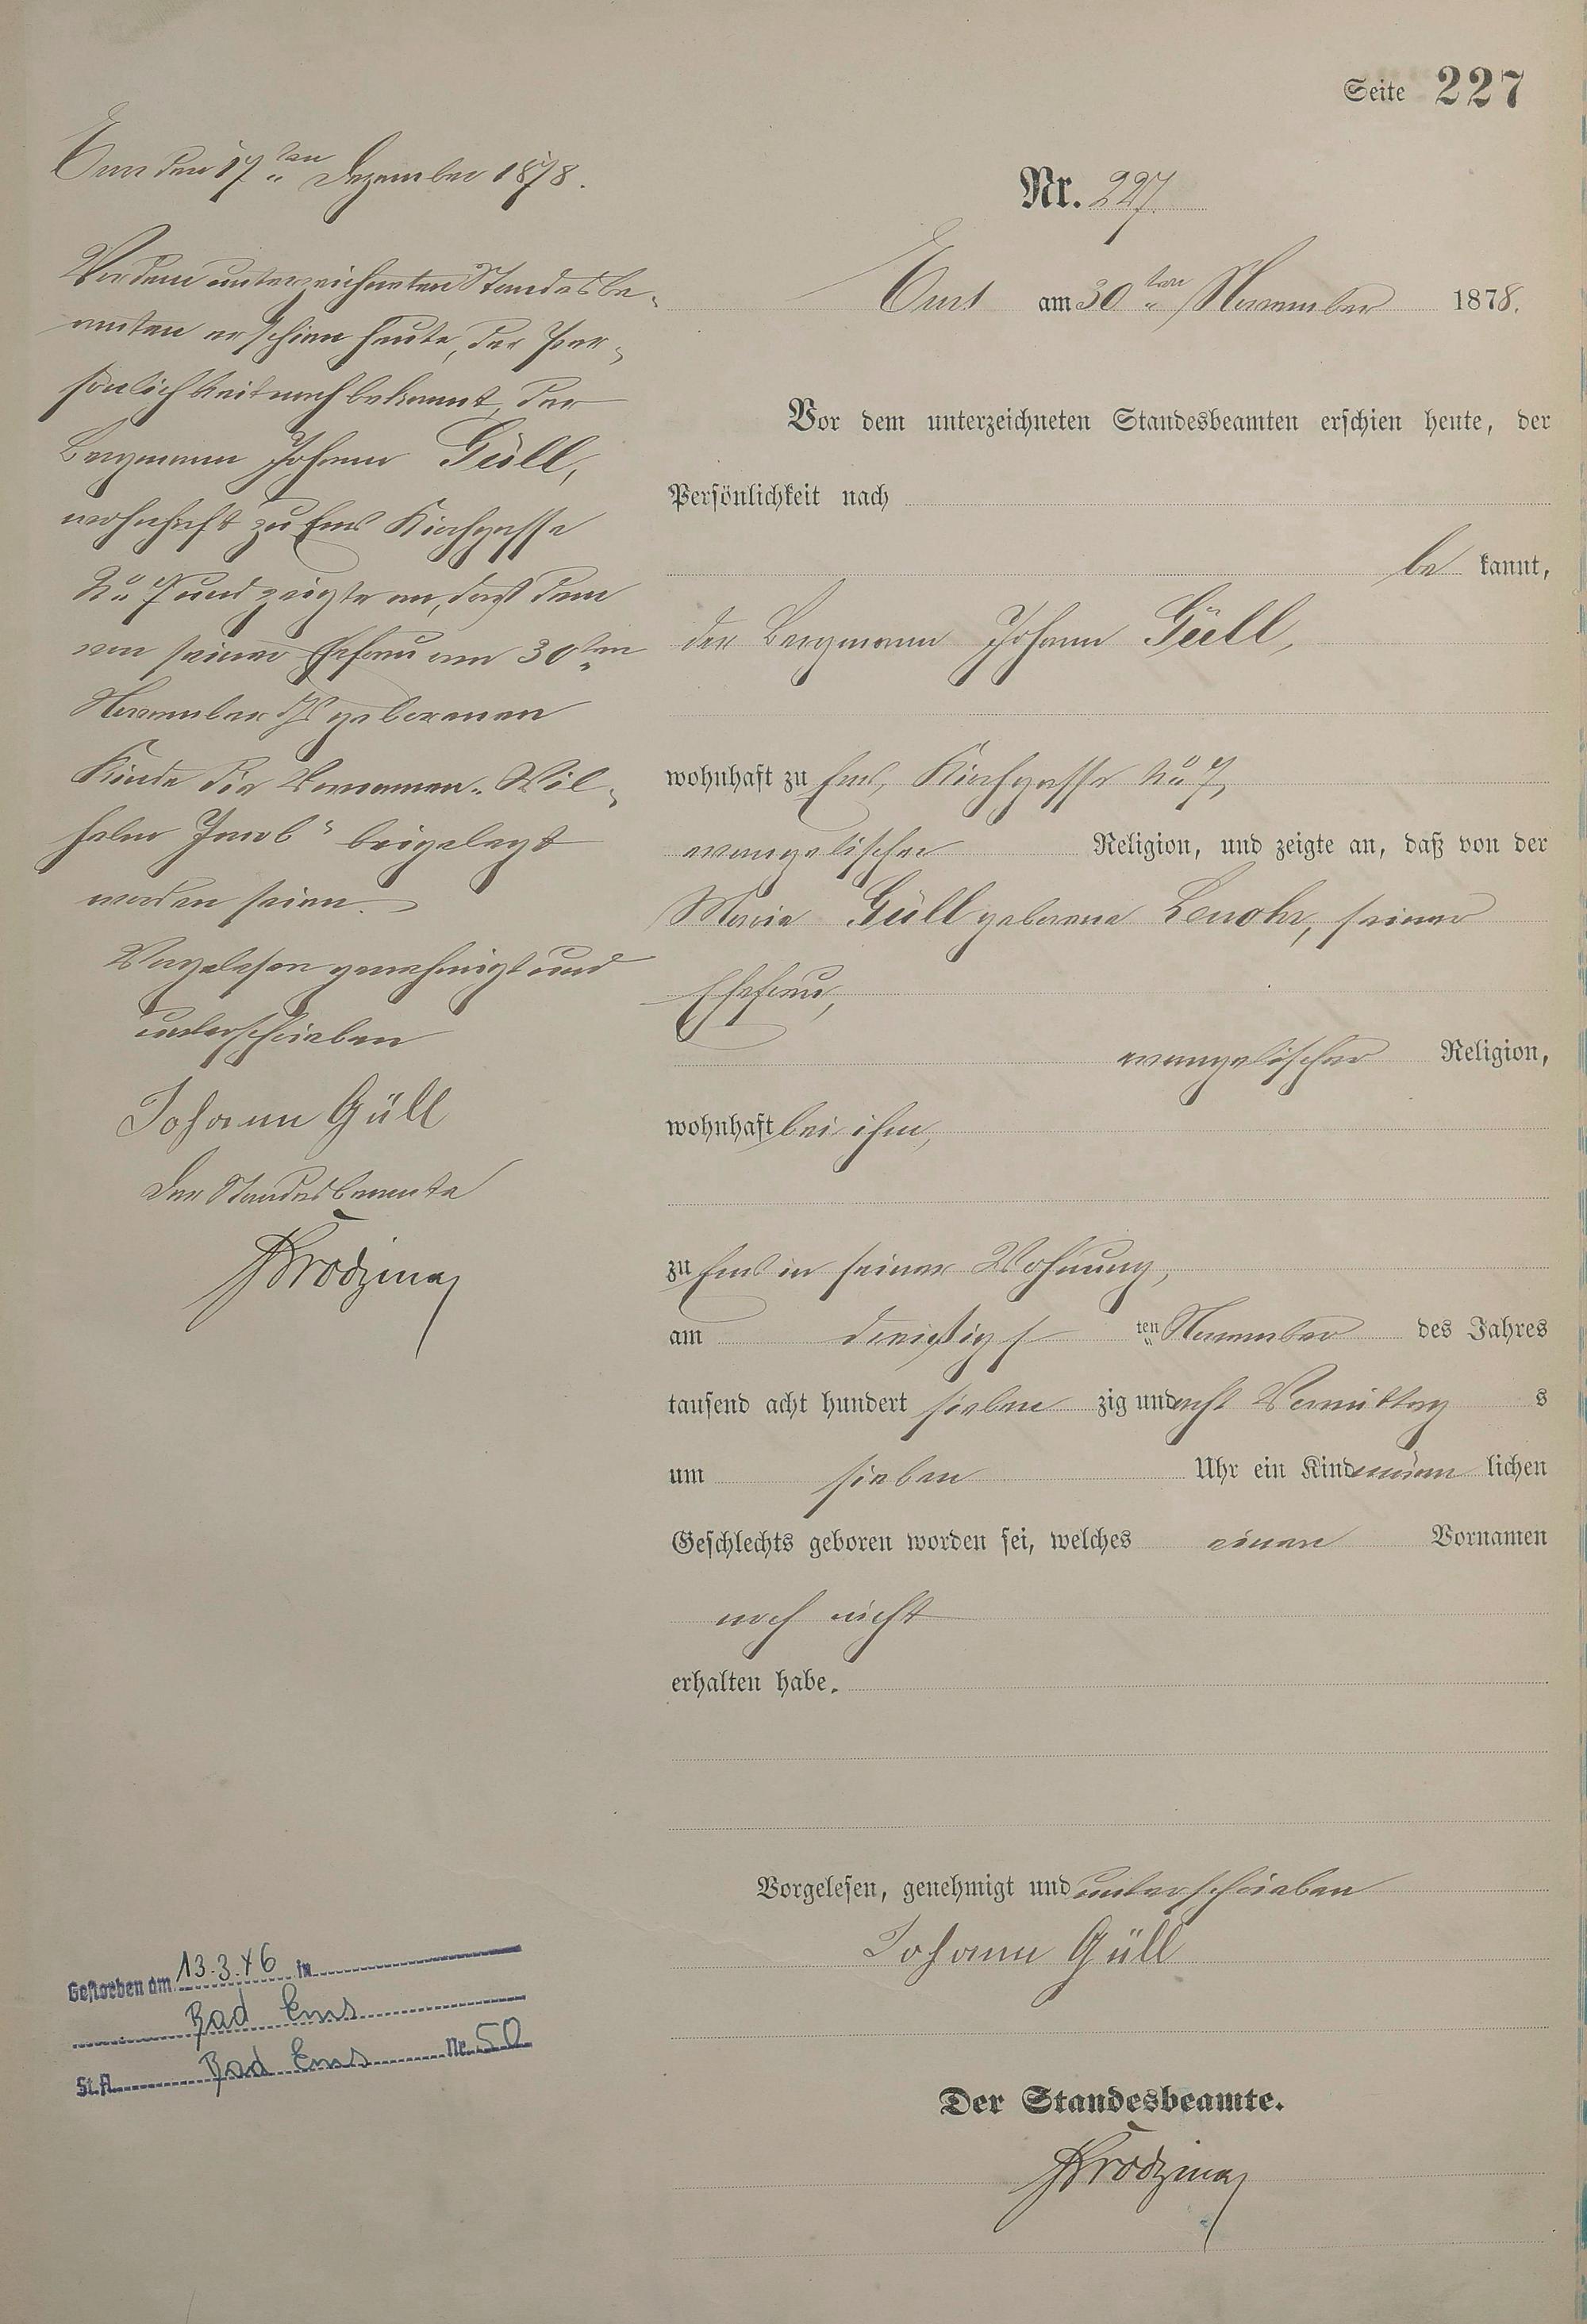 Seite 227
Ems den 17ten Dezember 1878.
Vor dem unterzeichneten Standesbe-
amten erschien heute, der Per-
sönlichkeit nach bekannt, der
Bergmann Johann Güll,
wohnhaft zu Ems Kirchgasse
No 7 und zeigte an, daß dem
von seiner Ehefrau am 30ten
November geborenen
Kinde die Vornamen „Wil-
helm Jacob“ beigelegt
worden seien.
Vorgelesen genehmigt und
unterschrieben
Johann Güll
Der Standesbeamte
Gestorben am 13.3.46 in
Bad Ems
St.A. Bad Ems Nr. 50
Nr. 227.
Ems am 30ten November 1878.
Vor dem unterzeichneten Standesbeamten erschien heute, der
Persönlichkeit nach
be kannt,
der Bergmann Johann Güll,
wohnhaft zu Ems, Kirchgasse No 7,
evangelischer Religion, und zeigte an, daß von der
Maria Güll geborene Lenohr, seiner
Ehefrau,
evangelischer Religion,
wohnhaft bei ihm,
zu Ems in seiner Wohnung,
am dreißigs ten November des Jahres
tausend acht hundert sieben zig und acht Vormittag s
um sieben Uhr ein Kind männ lichen
Geschlechts geboren worden sei, welches einen Vornamen
noch nicht
erhalten habe.
Vorgelesen, genehmigt und unterschrieben
Johann Güll
Der Standesbeamte.